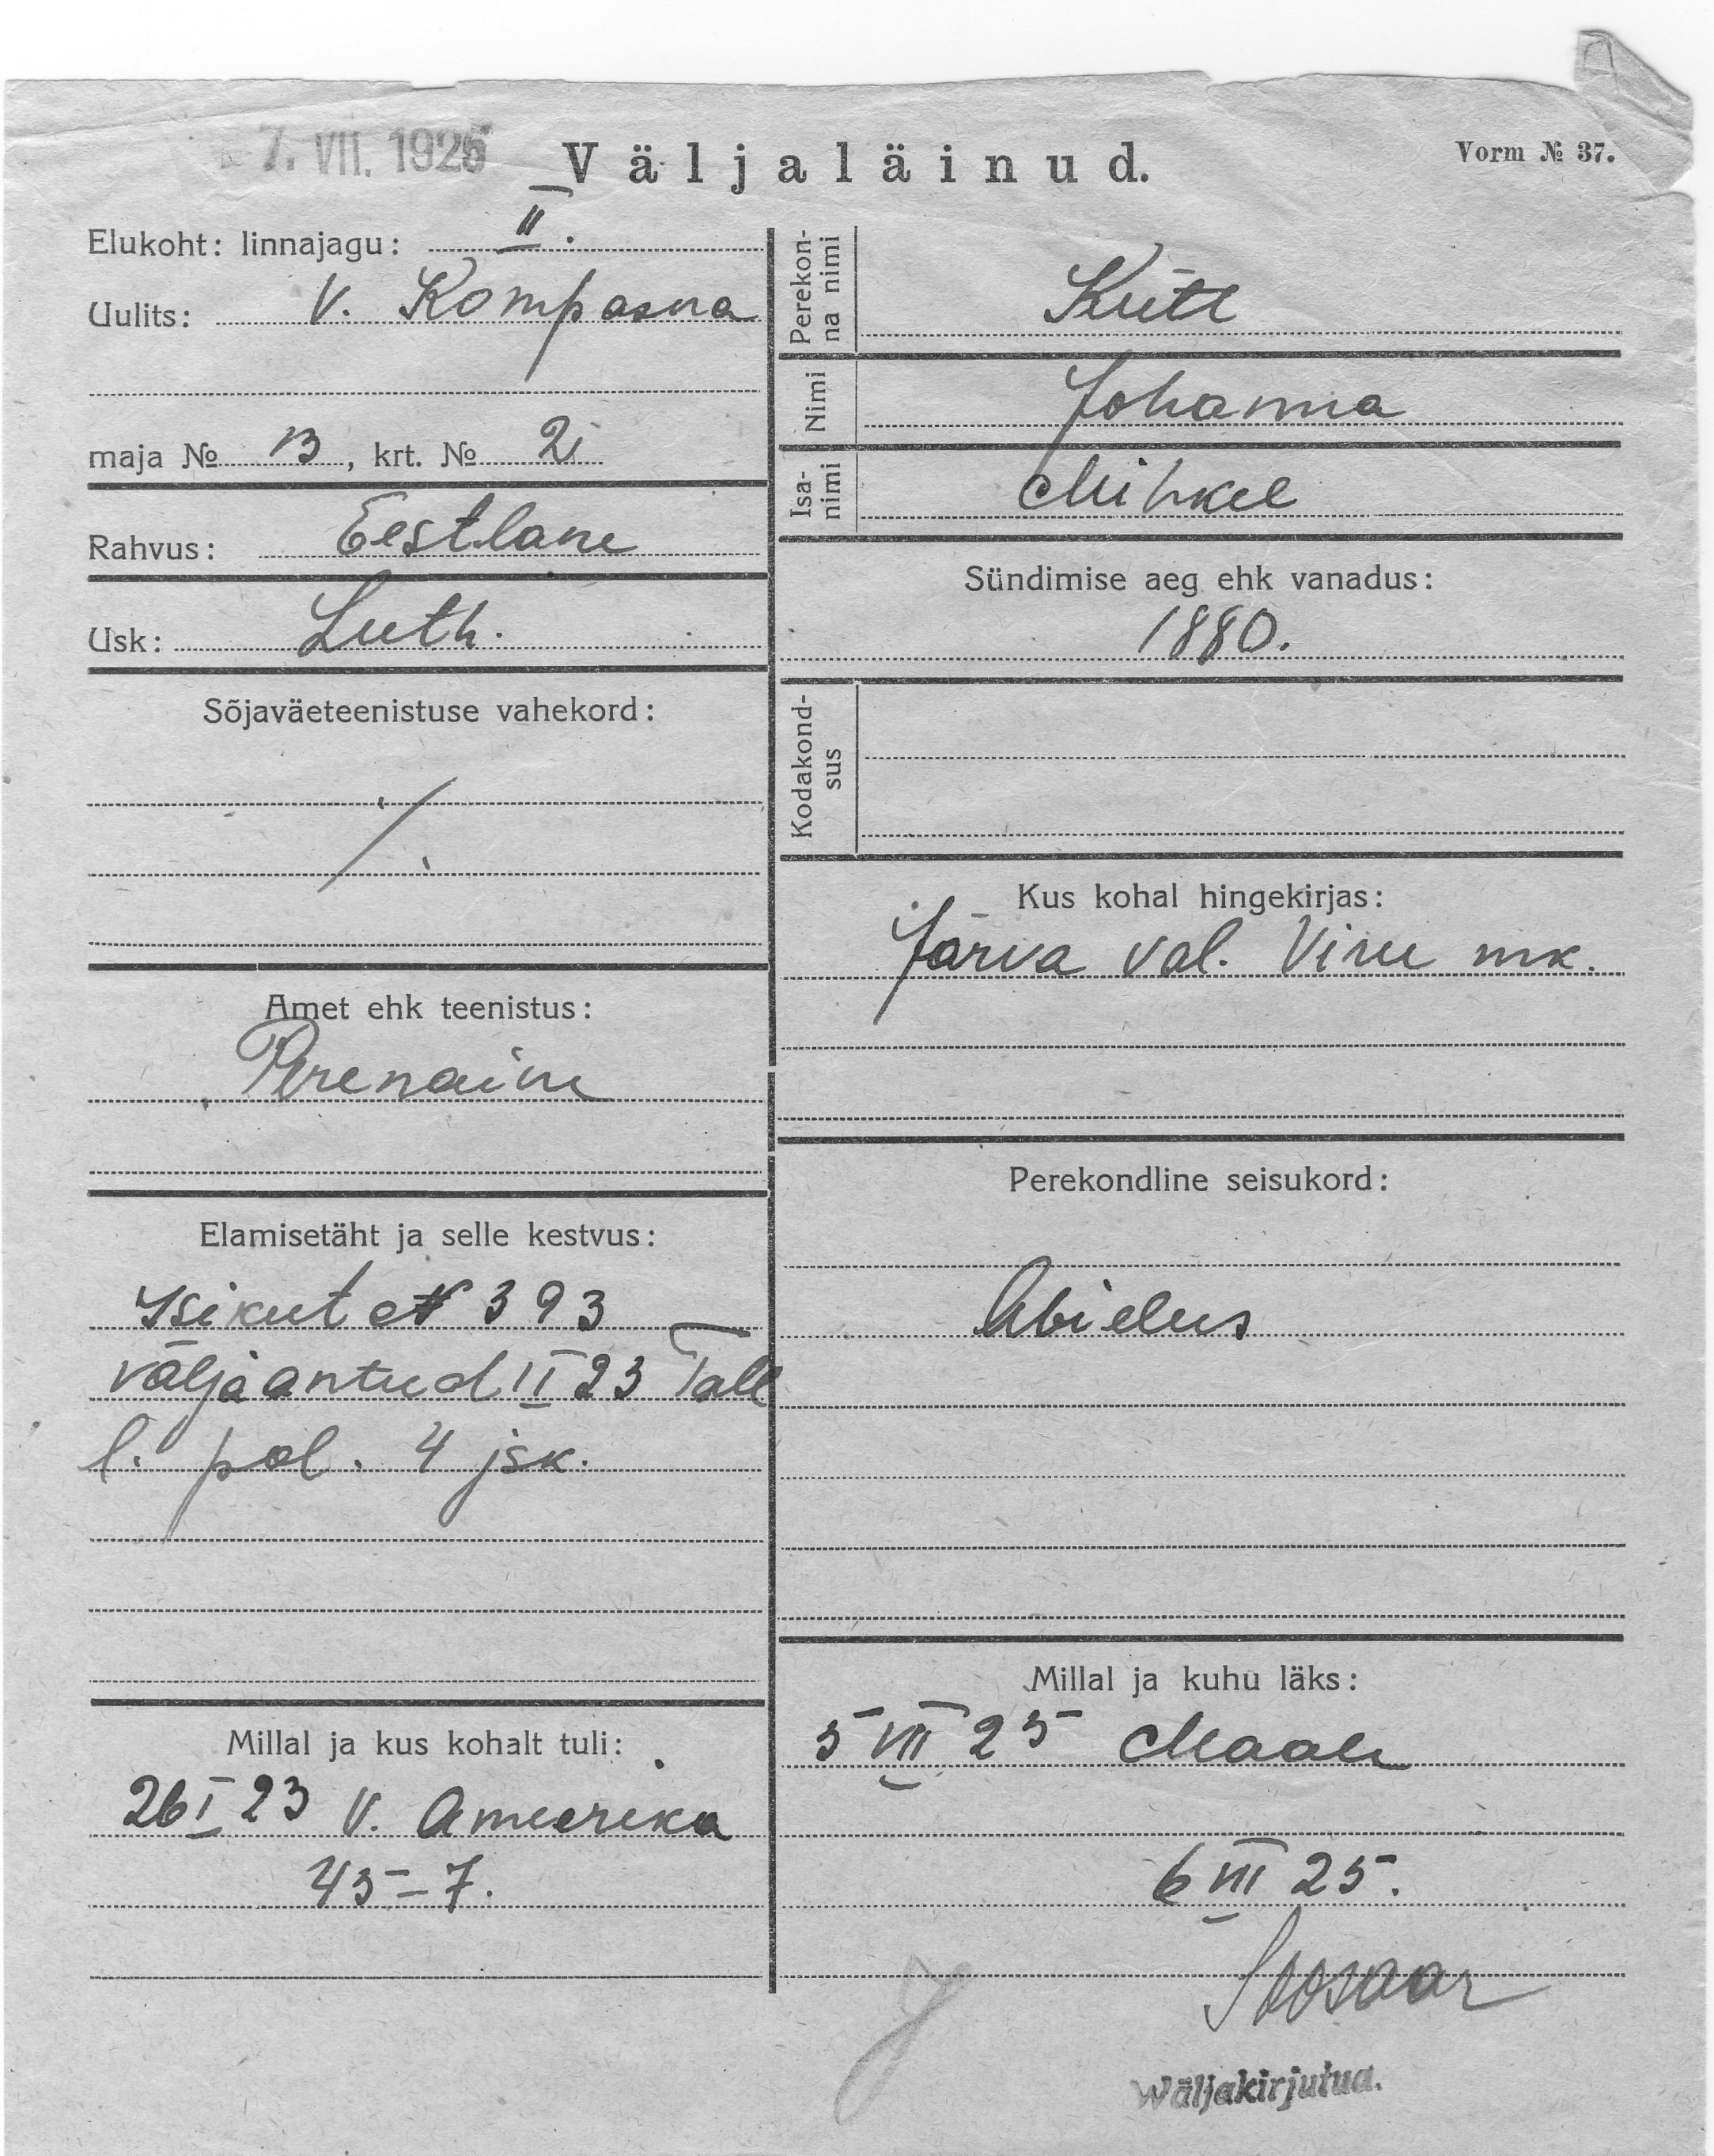 7. VII. 1925
Väljaläinud.
Vorm № 37.
Elukoht: linnajagu: II.
Uulits: V. Kompasna
maja № 13, krt. № 2
Rahvus: Eestlane
Usk: Luth.
Sõjaväeteenistuse vahekord:
Amet ehk teenistus:
Perenaine
Elamisetäht ja selle kestvus:
Isikut № 393
väljaantud II 23 Tall
l. pol. 4 jsk.
Millal ja kus kohalt tuli:
26 I 23 V. Ameerika
45-7.
Perekon-
na nimi
Kütt
Nimi
Johanna
Isa-
nimi
Mihkel
Sündimise aeg ehk vanadus:
1880.
Kodakond-
sus
Kus kohal hingekirjas:
Järva val. Viru mk.
Perekondline seisukord:
Abielus
Millal ja kuhu läks:
5 VII 25 Maale
6 VII 25.
Wäljakirjutud.